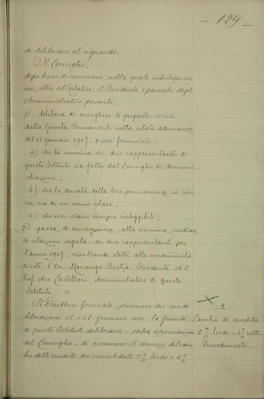 - 129 -
di deliberare al riguardo.
Il Consiglio,
dopo breve discussione, nella quale interloquiscono,
oltre al Relatore, il Presidente e parecchi degli
Amministratori presenti,
1) delibera di accogliere le proposte votate
dalla Giunta Permanente nella citata adunanza
del 15 gennaio 1907, e così formulate:
a) che la nomina dei due rappresentanti di
questo Istituto sia fatta dal Consiglio di Ammini-
strazione;
b) che la durata della loro permanenza in cari-
ca sia di un anno solare;
c) che essi siano sempre rieleggibili;
2) passa, di conseguenza, alla nomina, median-
te votazione segreta, dei due rappresentanti per
l'anno 1907, risultando eletti alla unanimità
di voti l'On. Marsengo Bastia, Presidente, ed il
Prof. Avv. Castellari, Amministratore di questo
Istituto.
2
Il Direttore Generale, premesso che con de-
liberazioni 15 e 28 gennaio 1907 la Giunta
Cambio di rendita
di questo Istituto deliberava - salva approvazione
5 % lordo e 4 % netto
del Consiglio - di assumere il servizio del cam-
Provvedimenti.
bio delle rendite dei consolidati 5 % lordo e 4 %